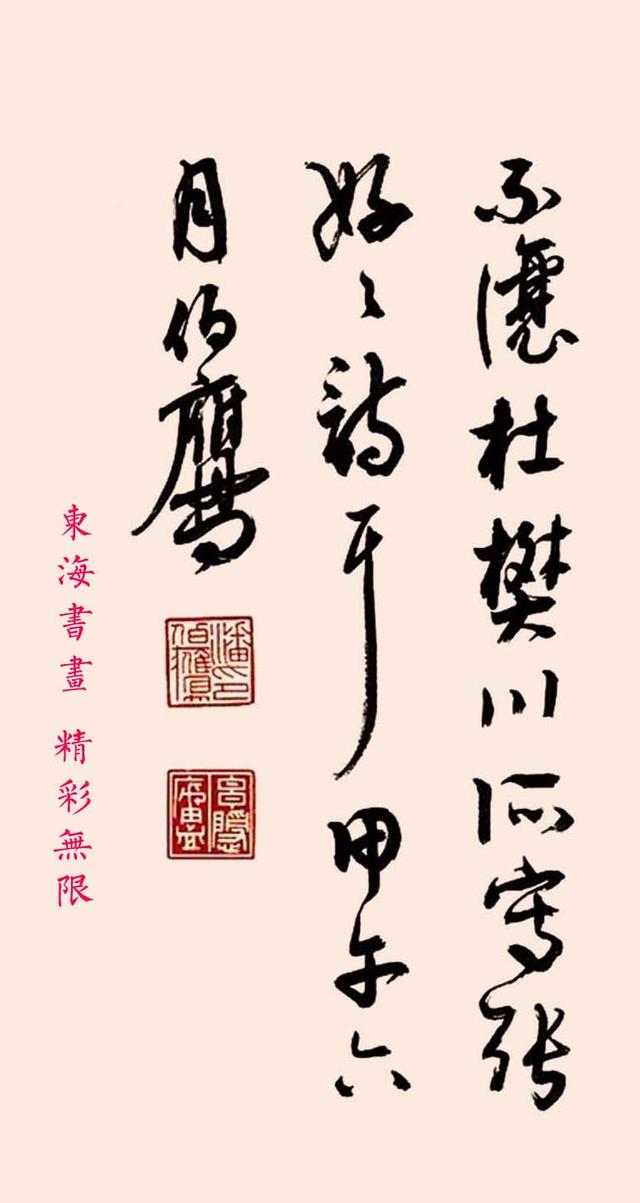 不讓杜樊川所寫張
好〻詩耳甲午六
月伯鷹
潘印伯鷹
東海書畫 精彩無限